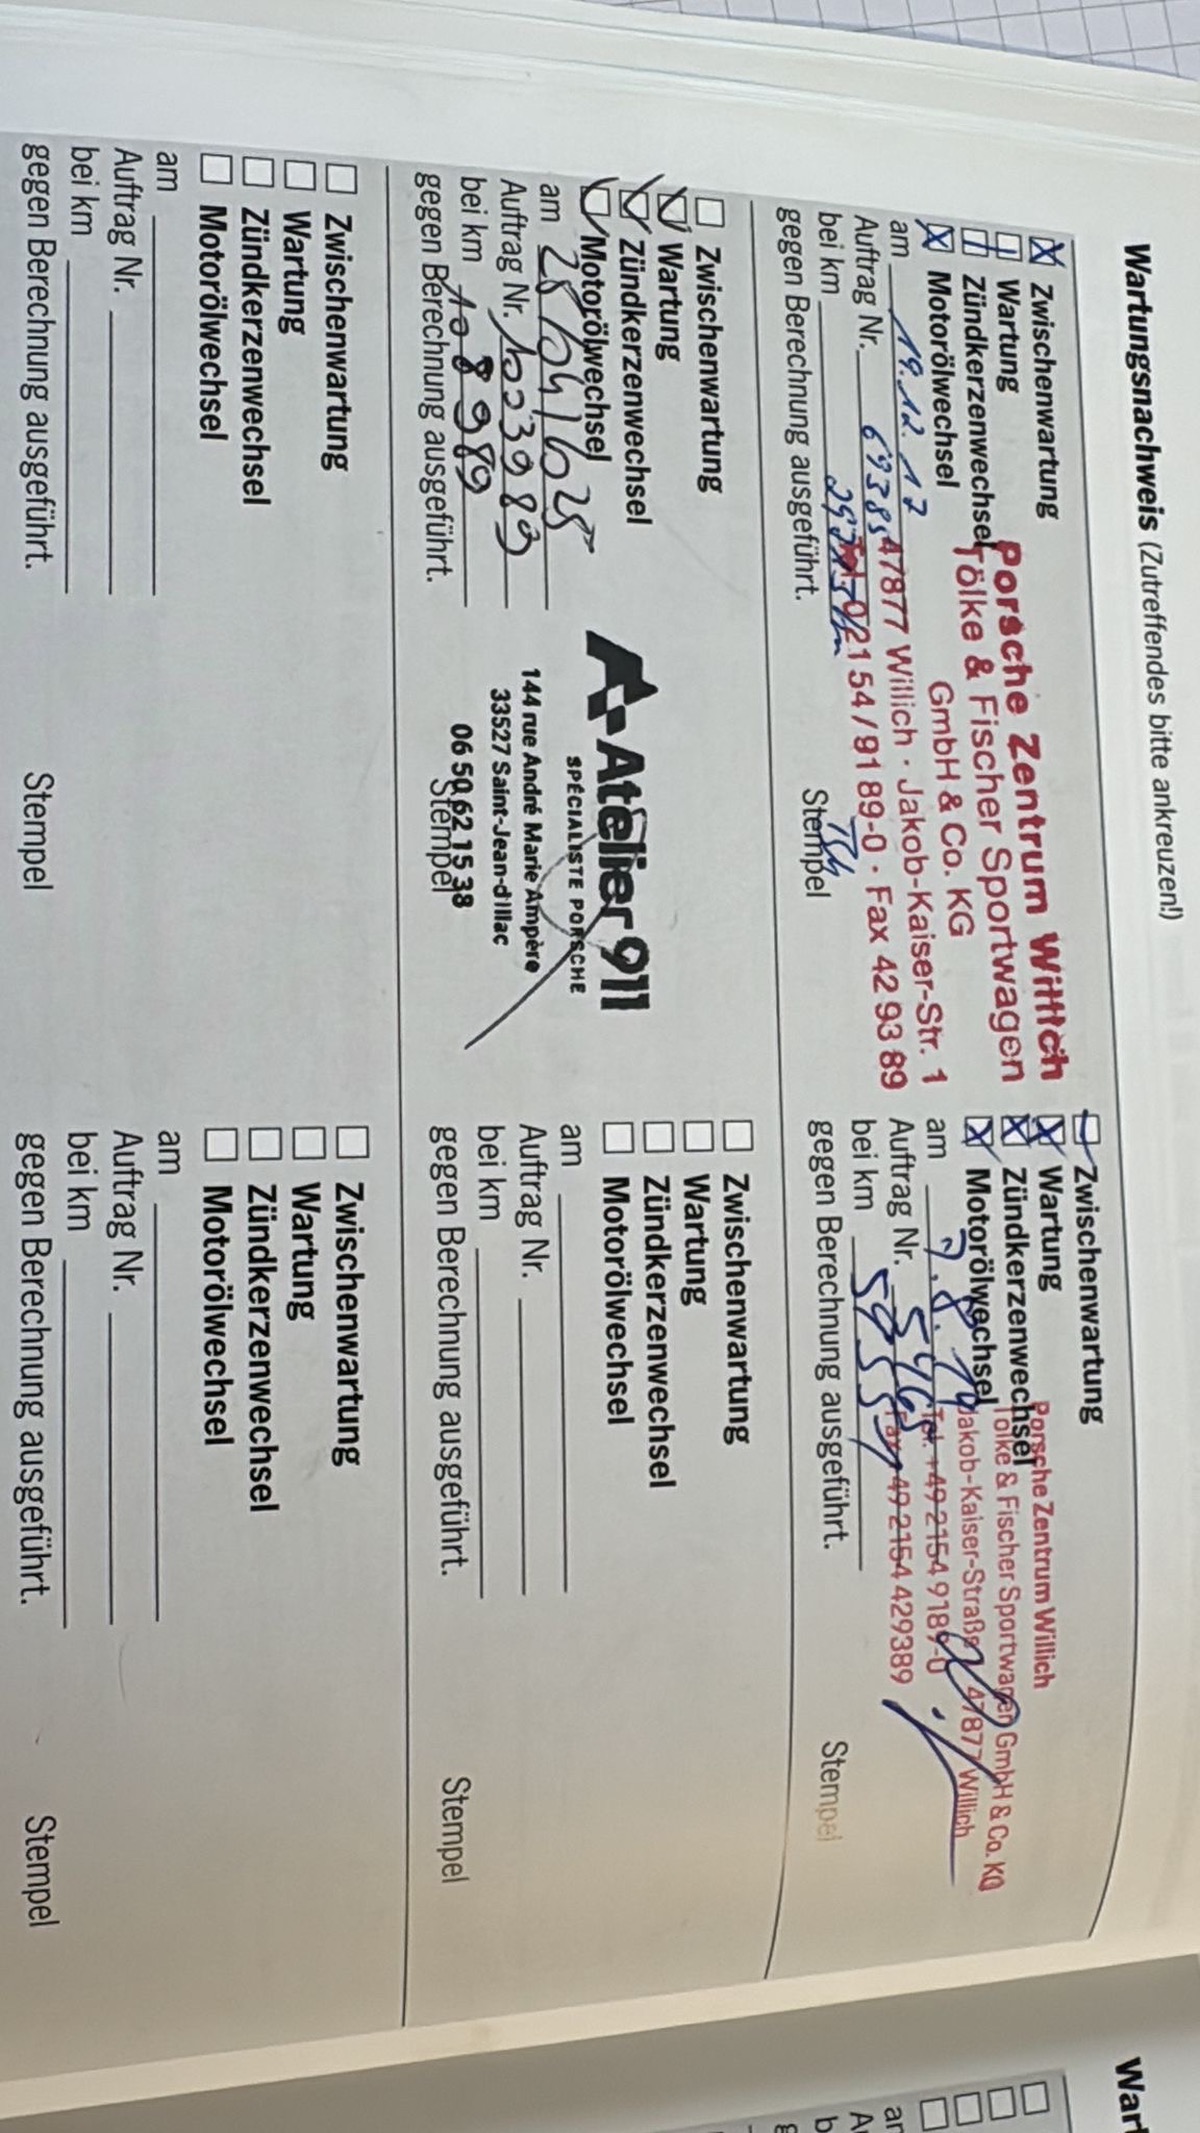 Wartungsnachweis (Zutreffendes bitte ankreuzen!)
Zwischenwartung
Wartung
Zündkerzenwechsel
Motorölwechsel
am 19.12.17
Auftrag Nr. 69385
bei km
gegen Berechnung ausgeführt.
Porsche Zentrum Willich
Tölke & Fischer Sportwagen
GmbH & Co. KG
47877 Willich · Jakob-Kaiser-Str. 1
Tel. 02154/9189-0 · Fax 42 93 89
Stempel
Zwischenwartung
Wartung
Zündkerzenwechsel
Motorölwechsel
am 7.8.19
Auftrag Nr.
bei km
gegen Berechnung ausgeführt.
Porsche Zentrum Willich
Tölke & Fischer Sportwagen GmbH & Co. KG
Jakob-Kaiser-Straße 47877 Willich
Tel. +49 2154 9189-0
Fax +49 2154 429389
Stempel
Zwischenwartung
Wartung
Zündkerzenwechsel
Motorölwechsel
am
Auftrag Nr.
bei km 108989
gegen Berechnung ausgeführt.
Atelier 911
SPÉCIALISTE PORSCHE
144 rue André Marie Ampère
33527 Saint-Jean-d'Illac
06 50 62 15 38
Stempel
Zwischenwartung
Wartung
Zündkerzenwechsel
Motorölwechsel
am
Auftrag Nr.
bei km
gegen Berechnung ausgeführt.
Stempel
Zwischenwartung
Wartung
Zündkerzenwechsel
Motorölwechsel
am
Auftrag Nr.
bei km
gegen Berechnung ausgeführt.
Stempel
Zwischenwartung
Wartung
Zündkerzenwechsel
Motorölwechsel
am
Auftrag Nr.
bei km
gegen Berechnung ausgeführt.
Stempel